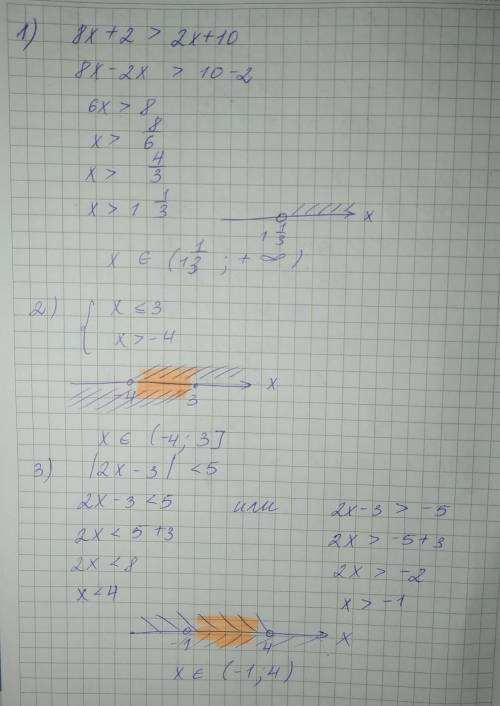 1) 8x+2 > 2x+10
8x-2x > 10-2
6x > 8
x > 8/6
x > 4/3
x > 1 1/3
x
1 1/3
x ∈ (1 1/3 ; +∞)
2) { x ≤ 3
x > -4
-4 3 x
x ∈ (-4; 3]
3) |2x-3| < 5
2x-3 < 5 или 2x-3 > -5
2x < 5+3 2x > -5+3
2x < 8 2x > -2
x < 4 x > -1
-1 4 x
x ∈ (-1; 4)